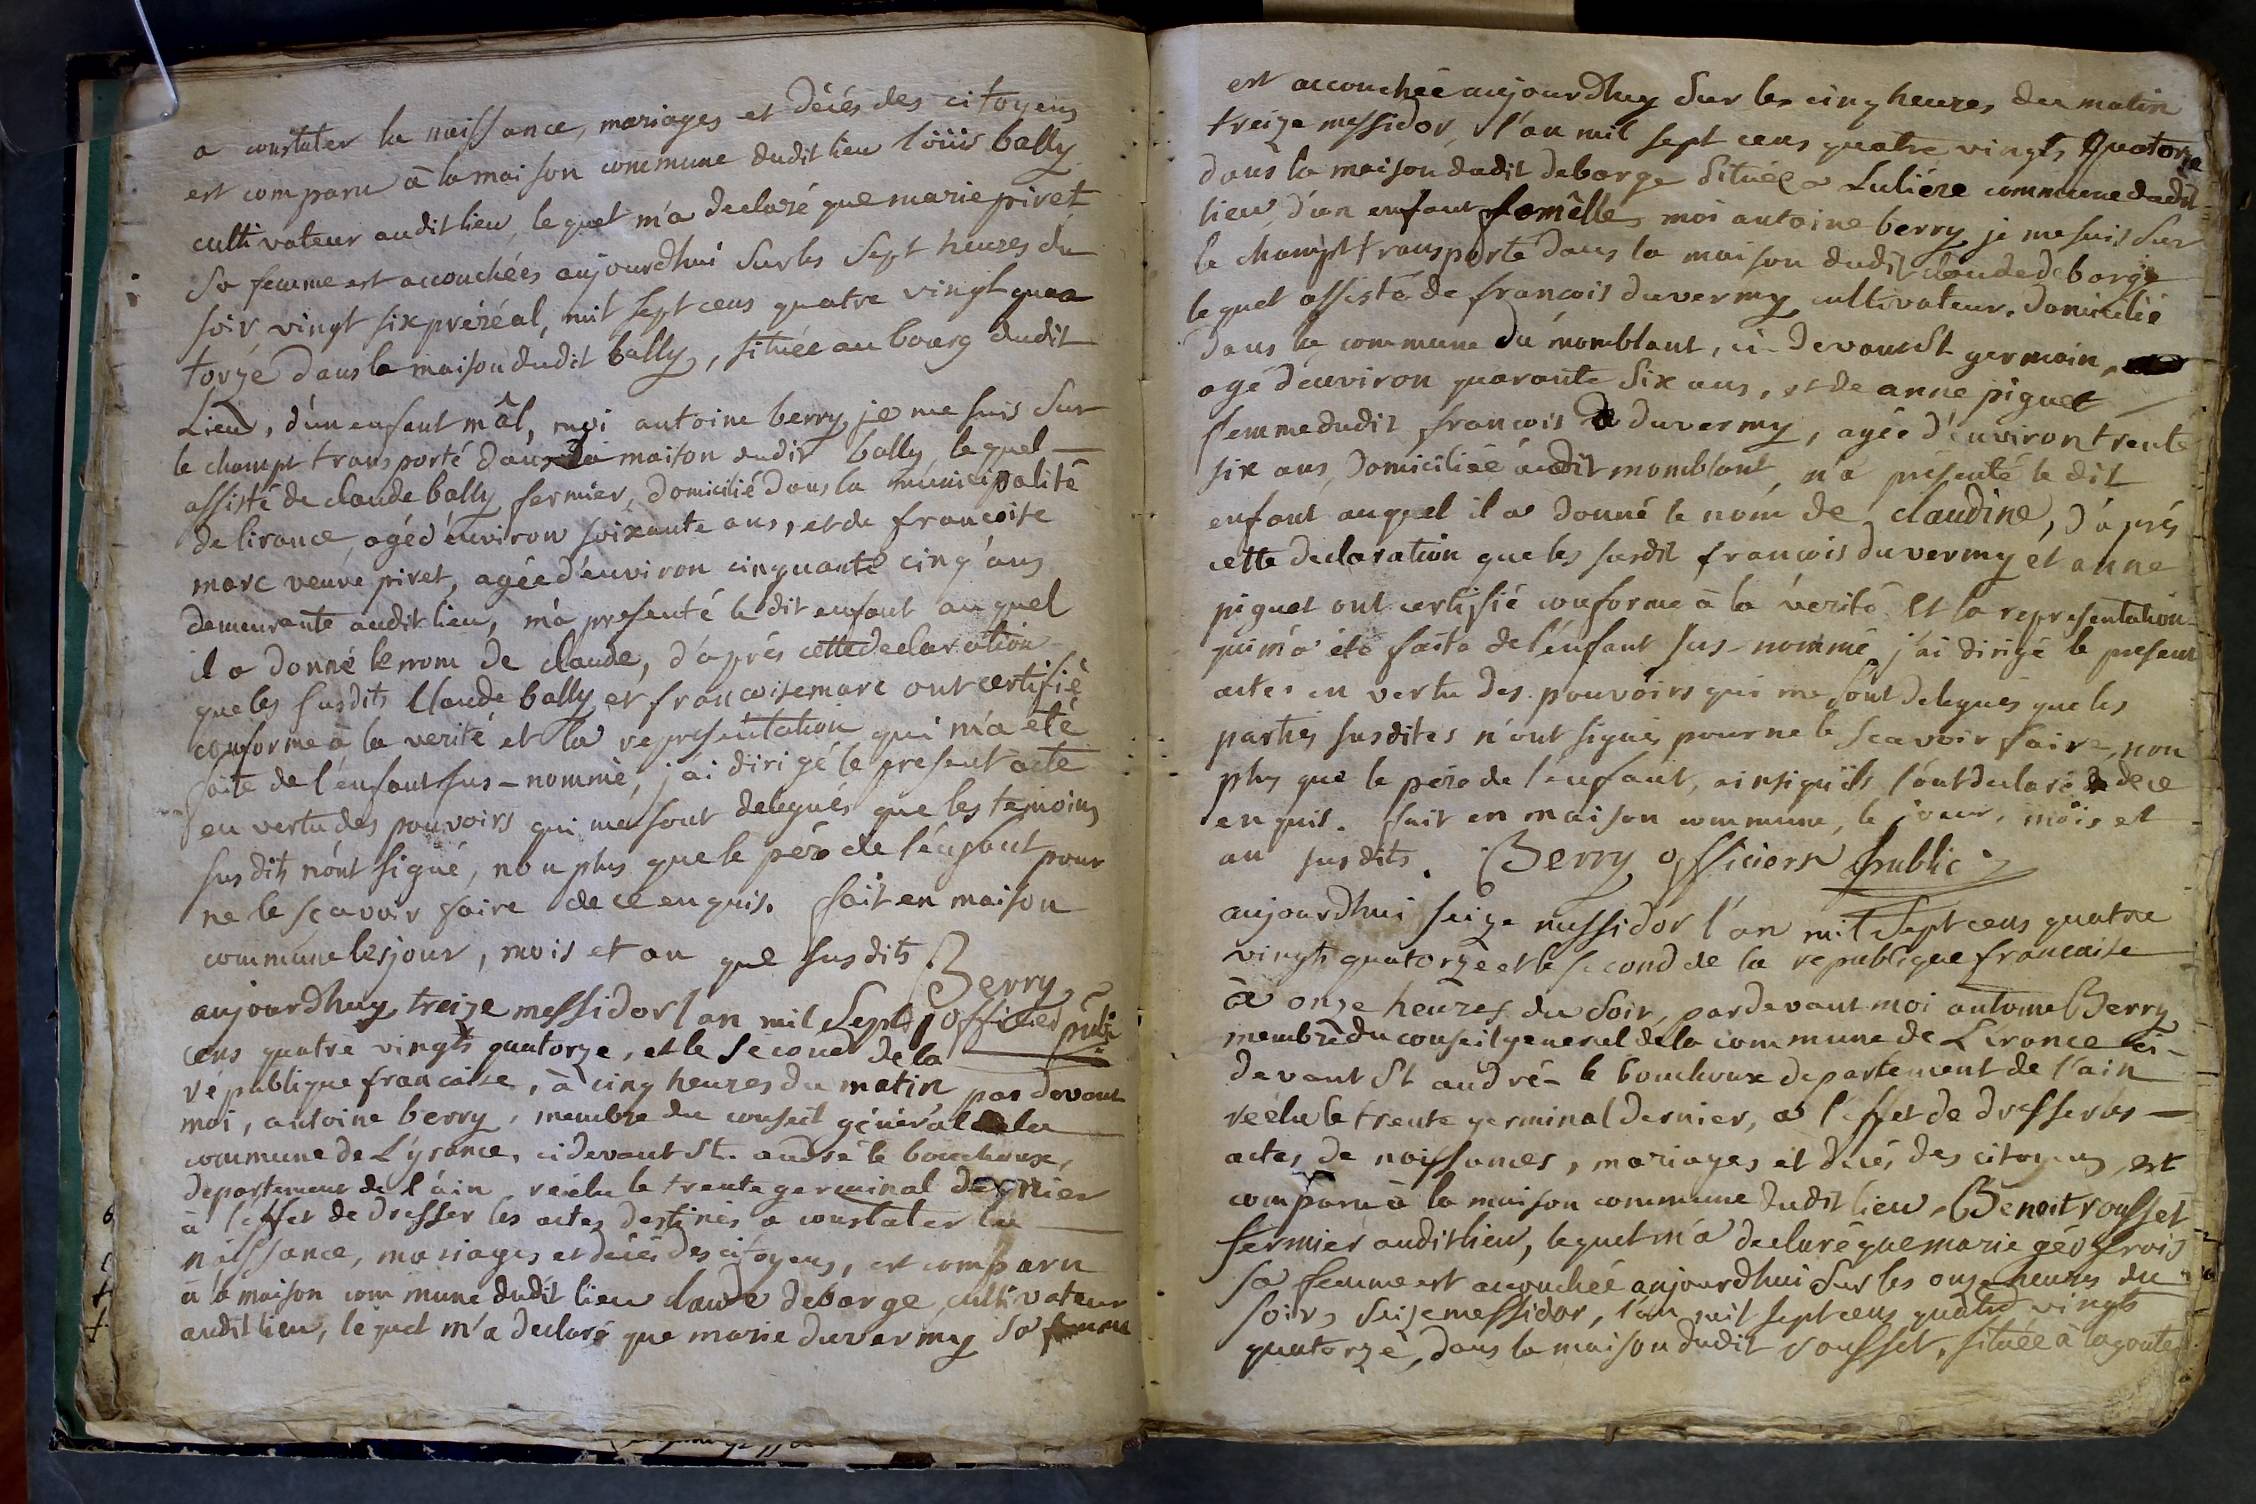 a constater la naissance, mariages et décés des citoyens
est comparu à la maison commune dudit lieu loüis bally
cultivateur audit lieu, lequel m'a declaré que marie piret
sa femme est accouchées aujourdhui sur les sept heures du
soir, vingt six préréal, mil sept cens quatre vingt qua
torze dans la maison dudit bally, située au bourg dudit
Lieu, d'un enfant mâl, moi antoine berry je me suis sur
le champt transporté dans la maison dudit bally, lequel
assisté de claude bally fermier, domicilié dans la municipalité
de lirance, agé d'environ soixante ans, et de francoise
marc veuve piret, agée d'environ cinquante cinq ans
demeurante audit lieu, m'a presenté le dit enfant auquel
il a donné le nom de claude, d'aprés cette declaration
que les susdits Claude bally et francoise marc ont certifié
conforme à la verité et la representation qui m'a été
faite de l'enfant sus-nommé, j'ai dirigé le present acte
en vertu des pouvoirs qui me sont delegués que les temoins
susdits n'ont signé, non plus que le pére de l'enfant pour
ne le scavoir faire de ce enquis. fait en maison
commune les jour, mois et an que susdits Berry
officier public
aujourdhuy treize messidor l'an mil sept
cens quatre vingts quatorze, et le second de la
république francaise, à cinq heures du matin par devant
moi, antoine berry, membre du conseil général de la
commune de Lyrance, ci devant St. andré le bouchoux,
departement de l'ain réélu le trente germinal dernier
à l'effet de dresser les actes destinés a constater la
naissance, mariages et décés des citoyens, est comparu
à la maison commune dudit lieu claude debarge cultivateur
audit lieu, lequel m'a declaré que marie duvermy sa femme
est accouchée aujourdhuy sur les cinq heures du matin
treize messidor, l'an mil sept cens quatre vingts quatorze
dans la maison dudit debarge située a Luliére commune dudit
lieu, d'un enfant femêlle, moi antoine berry je me suis sur
le champt transporté dans la maison dudit claude debarge
lequel assisté de francois duvermy cultivateur, domicilié
dans la commune du momblant, ci-devant St germain,
agé d'environ quarante six ans, et de anne piguet
femme dudit francois duvermy, agée d'environ trente
six ans, domiciliée audit momblant, m'a présenté le dit
enfant auquel il a donné le nom de claudine, d'aprés
cette declaration que les susdit francois duvermy et anne
piguet ont certifié conforme à la verité et la representation
qui m'a été faite de l'enfant sus-nommé j'ai dirigé le present
actes en vertu des pouvoirs qui me sont delegués que les
parties susdites n'ont signés pour ne le scavoir faire, non
plus que le pére de l'enfant, ainsi qu'ils l'ont declaré de ce
enquis. fait en maison commune, le jour, mois et
an susdits. Berry officiers public
aujourdhui seize messidor l'an mil sept cens quatre
vingts quatorze et le second de la republique francaise
à onze heures du soir, pardevant moi antoine Berry
membre du conseil general de la commune de Lirance ci-
devant St andré-le bouchoux departement de l'ain
réélu le trente germinal dernier, a l'effet de dresser les
actes de naissances, mariages et decés des citoyens, est
comparu à la maison commune dudit lieu, Benoit rousset
fermier audit lieu, lequel m'a declaré que marie géofrois
sa femme est accouchée aujourdhui sur les onze heures du
soirs seize messidor, l'an mil sept cens quatre vingts
quatorze, dans la maison dudit rousset, située à lagoute